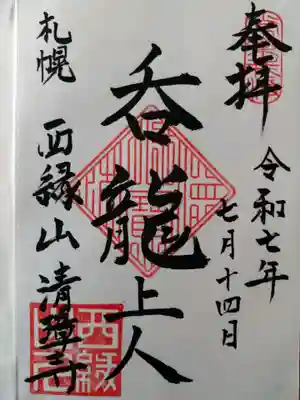 奉拝
令和七年
七月十四日
呑龍上人
札幌
西縁山
清璋寺